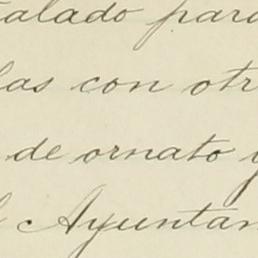 talado para
las con otr
de ornato y
l Ayuntam